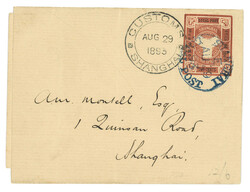 CUSTOMS
AUG 29
1893
SHANGHAI
POST
Am. Montell, Esq.,
1 Quinsan Road,
Shanghai.